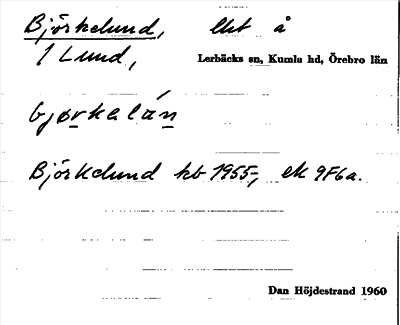 Björkelund, lht å
1 Lund,
Lerbäcks sn, Kumla hd, Örebro län
bjørkalán
Björkelund hb 1955-, ek 9F6a.
Dan Höjdestrand 1960